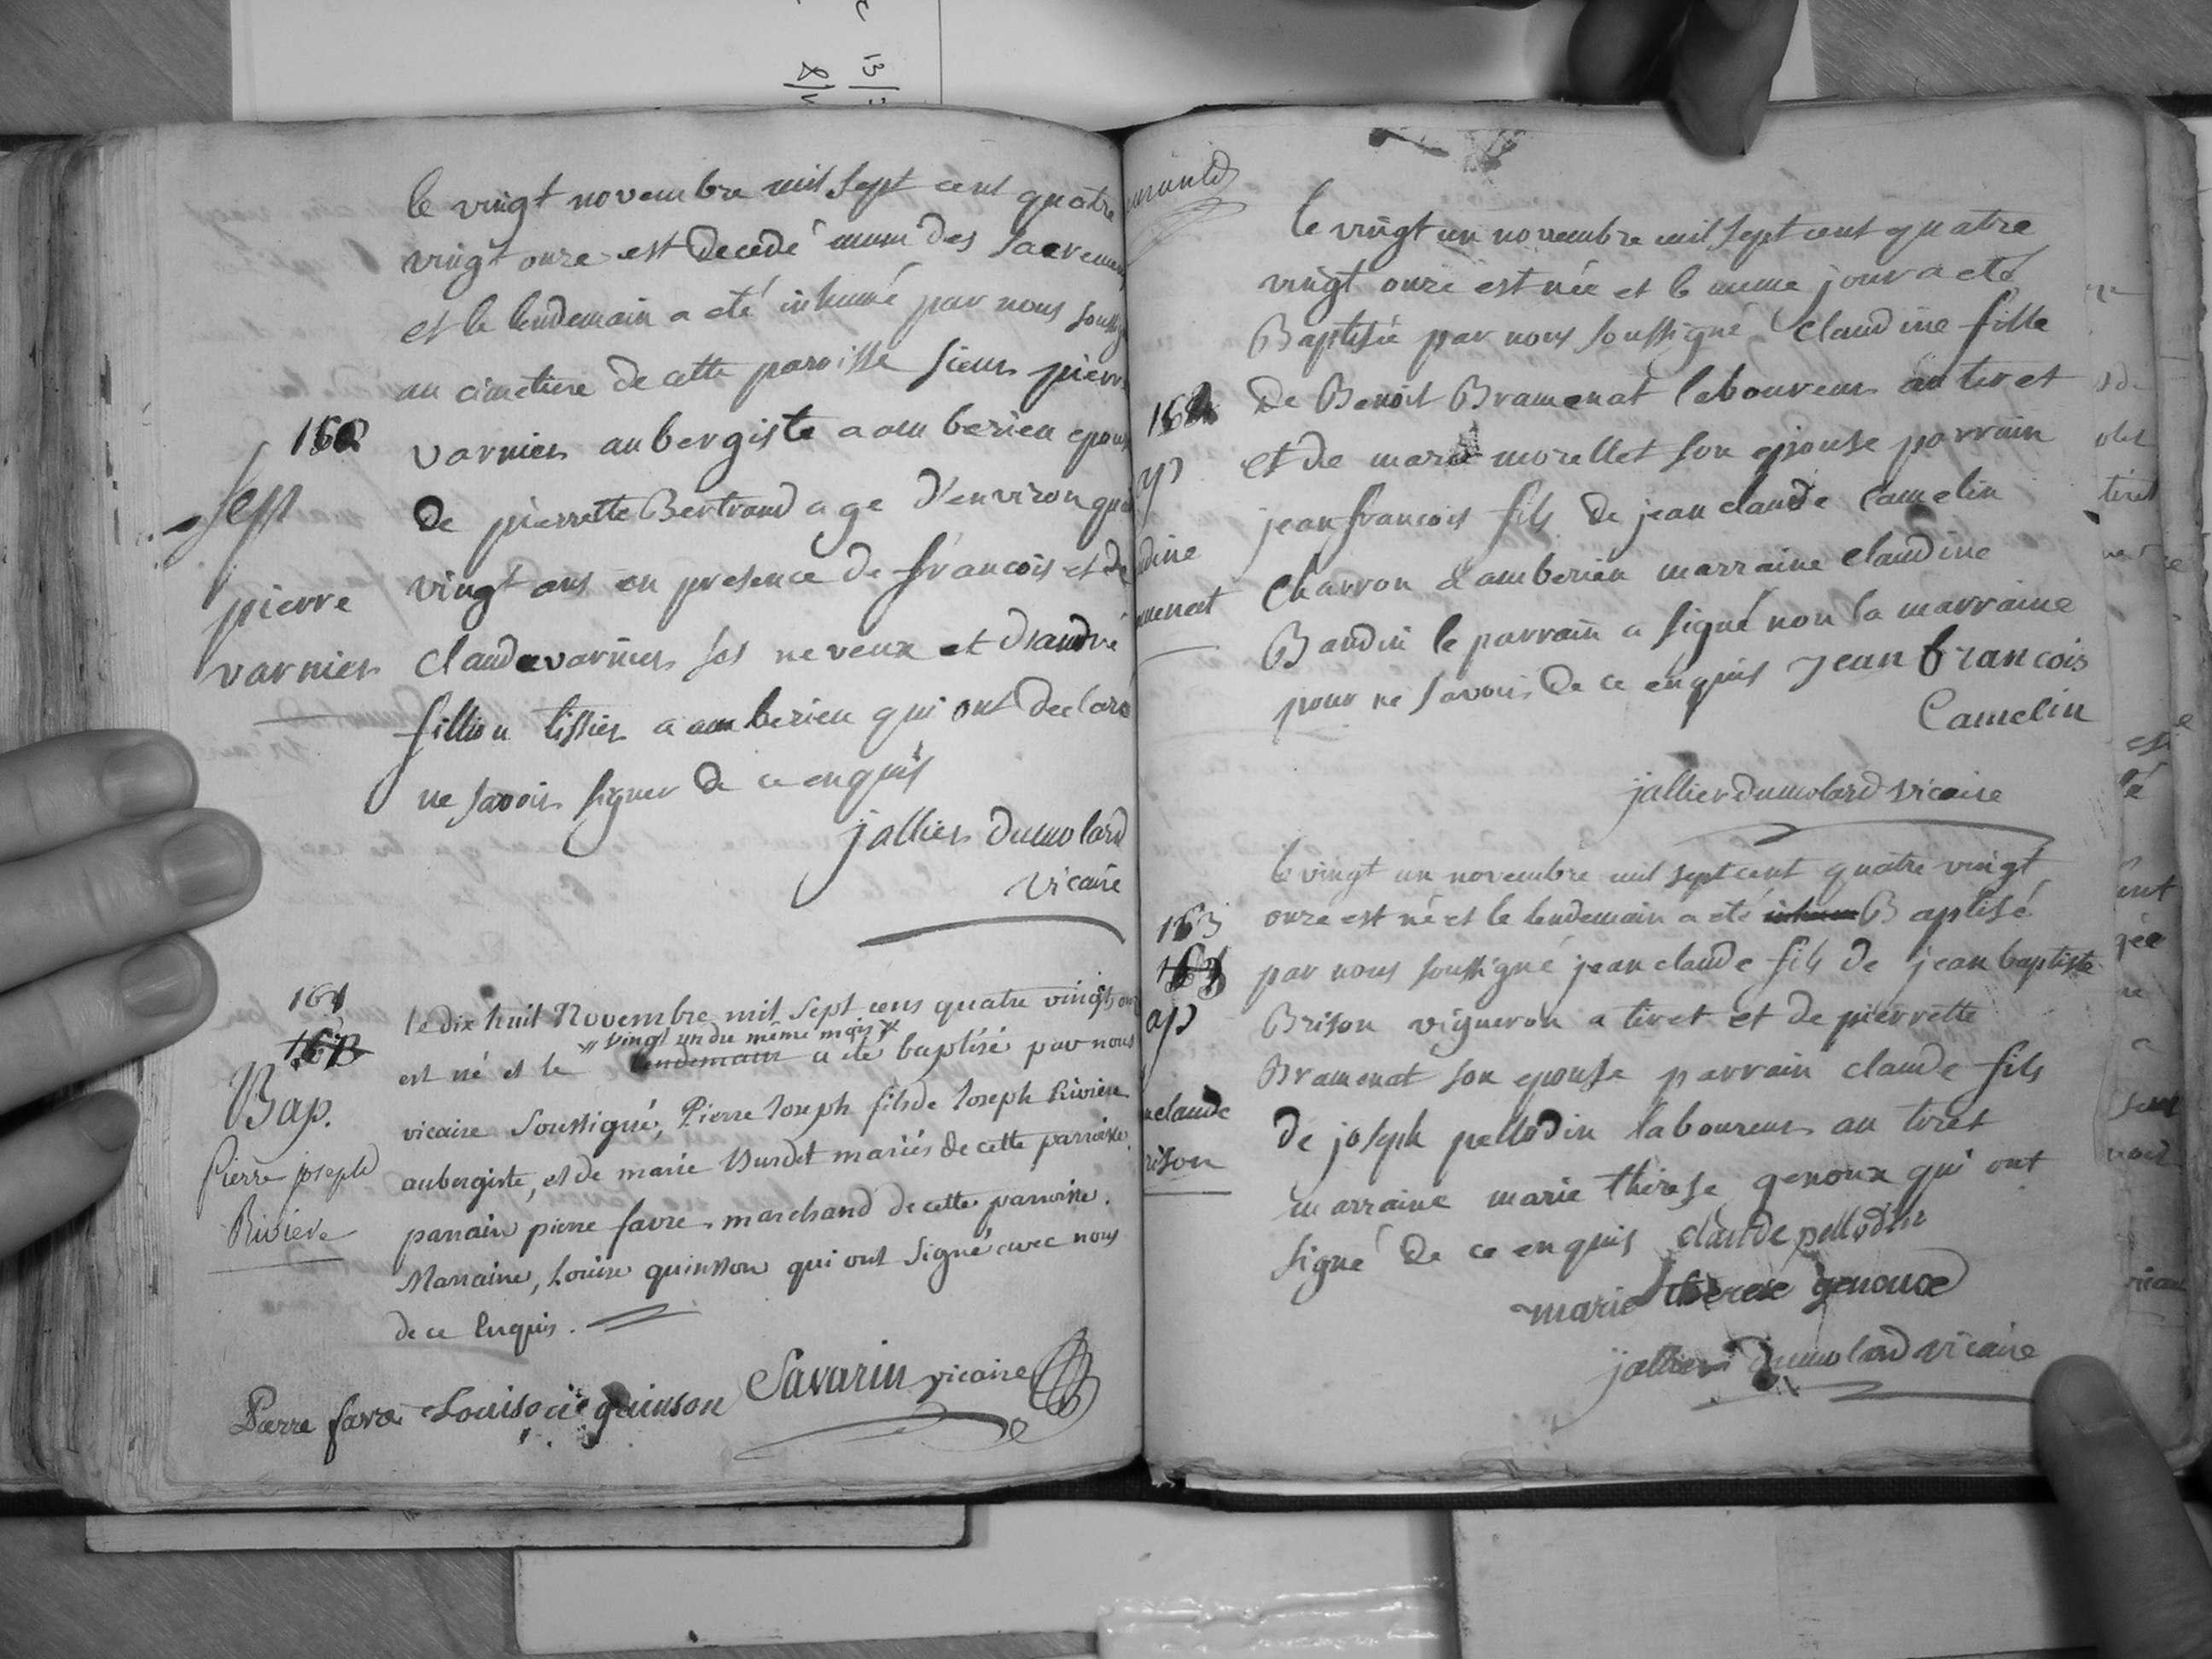 le vingt novembre mil sept cent quatre
vingt onze est decedé muni des sacremens
et le lendemain a eté inhumé par nous soussig
au cimetiere de cette paroisse sieur pierre
160
varnier aubergiste a amberieu epou
sep
de pierrette Bertrand age d'environ qua
vingt ans en presence de francois et de
pierre
varnier
claude varnier ses neveux et d'andré
fillion tissier a amberieu qui ont declaré
ne savoir signer de ce enquis
jallier dumolard
vicaire
161
le dix huit Novembre mil sept cens quatre vingt on
vingt un du même mois
est né et le lendemain a été baptisé par nous
Bap.
vicaire Soussigné, Pierre Joseph fils de Joseph Rivière
Pierre joseph
aubergiste, et de marie Burdet mariés de cette parroisse.
Riviere
parrain pierre favre marchand de cette parroisse.
Marraine, Louise quinson qui ont Signé avec nous
de ce Enquis.
Pierre favre
quinson
Savarin vicaire
le vingt un novembre mil sept cent quatre
vingt onze est née et le meme jour a eté
Baptisée par nous soussigné Claudine fille
162
de Benoit Bramenat laboureur au tiret
ap
et de marie morellet son epouse parrain
jean francois fils de jean claude Camelin
dine
charron d amberieu marraine claudine
menat
Baudin le parrain a signé non la marraine
pour ne savoir de ce enquis Jean francois
Camelin
jallier dumolard vicaire
le vingt un novembre mil sept cent quatre vingt
163
onze est né et le lendemain a eté inhum Baptisé
par nous soussigné jean claude fils de jean baptiste
ap
Brison vigneron a tiret et de pierrette
Bramenat son epouse parrain claude fils
claude
de joseph pellodin laboureur au tiret
rison
marraine marie therese genoux qui ont
signé de ce enquis claude pellodin
marie therese genoux
jallier dumolard vicaire